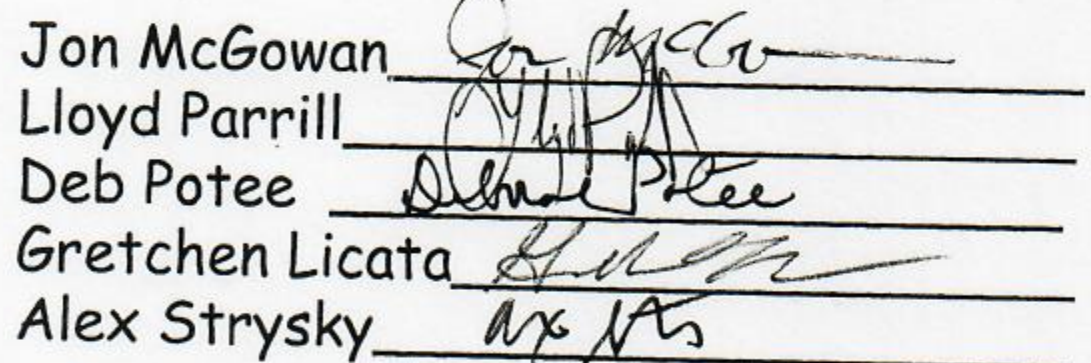 Jon McGowan Jon McGo
Lloyd Parrill
Deb Potee Deborah Potee
Gretchen Licata
Alex Strysky